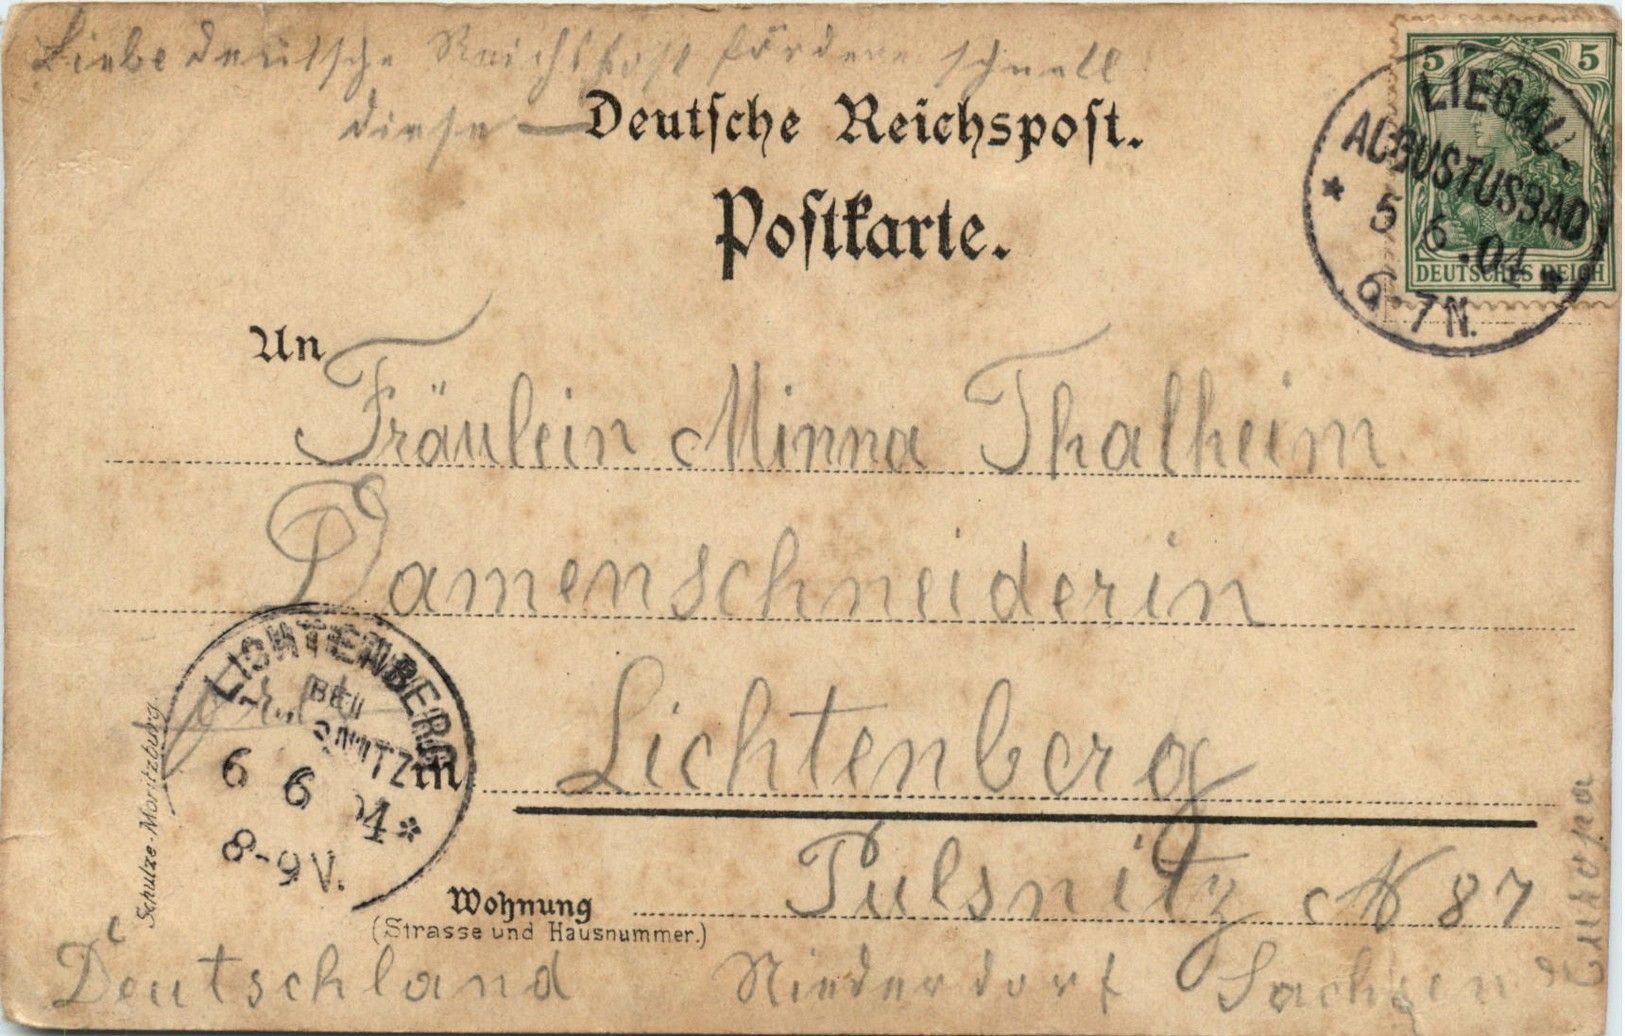 Liebe deutsche Reichspost fördere schnell
diese —
Deutsche Reichspost.
Postkarte.
5 5
DEUTSCHES REICH
LIEGAU-
AUGUSTUSBAD
5 6 .04
6-7N.
An
Fräulein Minna Thalheim
Damenschneiderin
LICHTENBERG
BEI
6 6 04
8-9V.
in
Lichtenberg
Pulsnitz No 87
Wohnung
(Strasse und Hausnummer.)
Deutschland Niederdorf Sachsen
Europa
Schulze-Moritzburg.